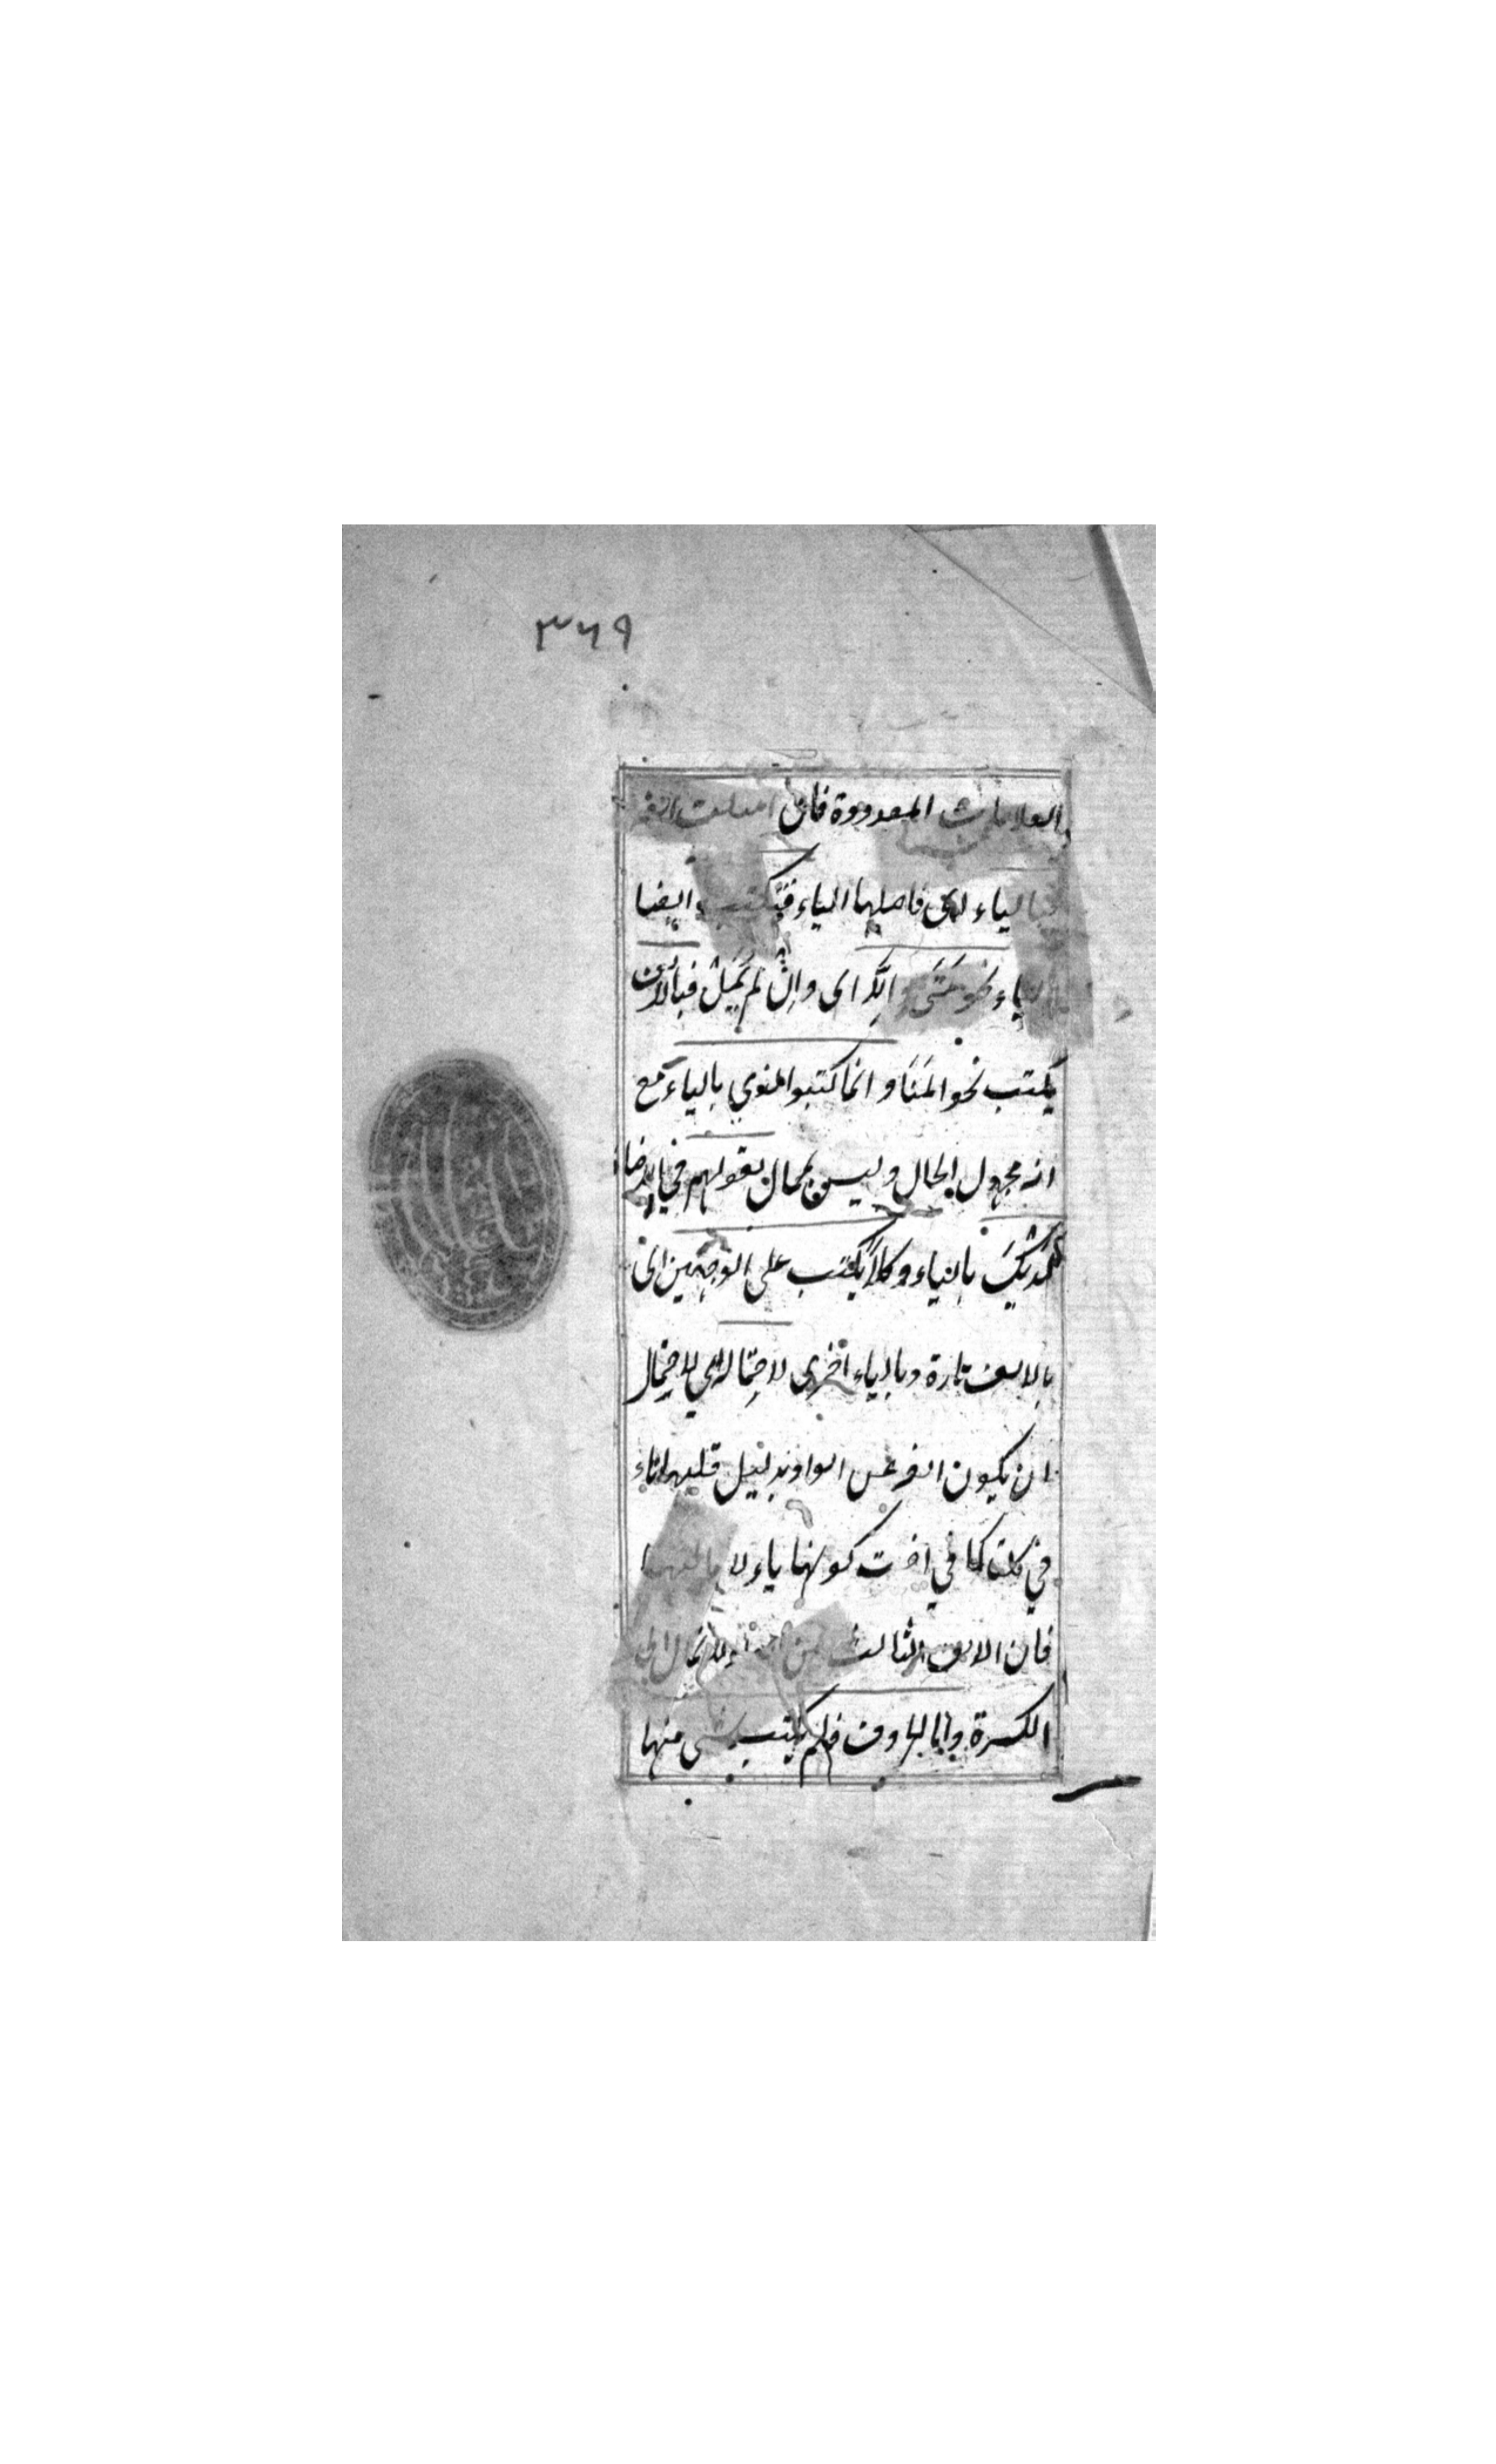 ٣٦٩
العلامات المعدودة فان اميلت الفه
فبالياء اى فاصلها الياء فيكتب ايضا
بالياء نحو مَتَى و الَّا اى وان لم تُمَلْ فبالالف
يكتب نحو المَنَا و انما كتبوا لدى بالياء مع
انه مجهول الحال وليس بممال لقولهم في الاضافة
لَدَيْكَ بالياء وكلا يكتب على الوجهين اى
بالالف تارة وبالياء اخرى لاحتماله اى لاحتمال
ان يكون الفه عن الواو بدليل قلبها تاء
في كلتا كما في اخت كونها ياء لا
فان الالف الثالثة عن لا تمال الى
الكسرة واما الحروف فلم يكتب شئ منها